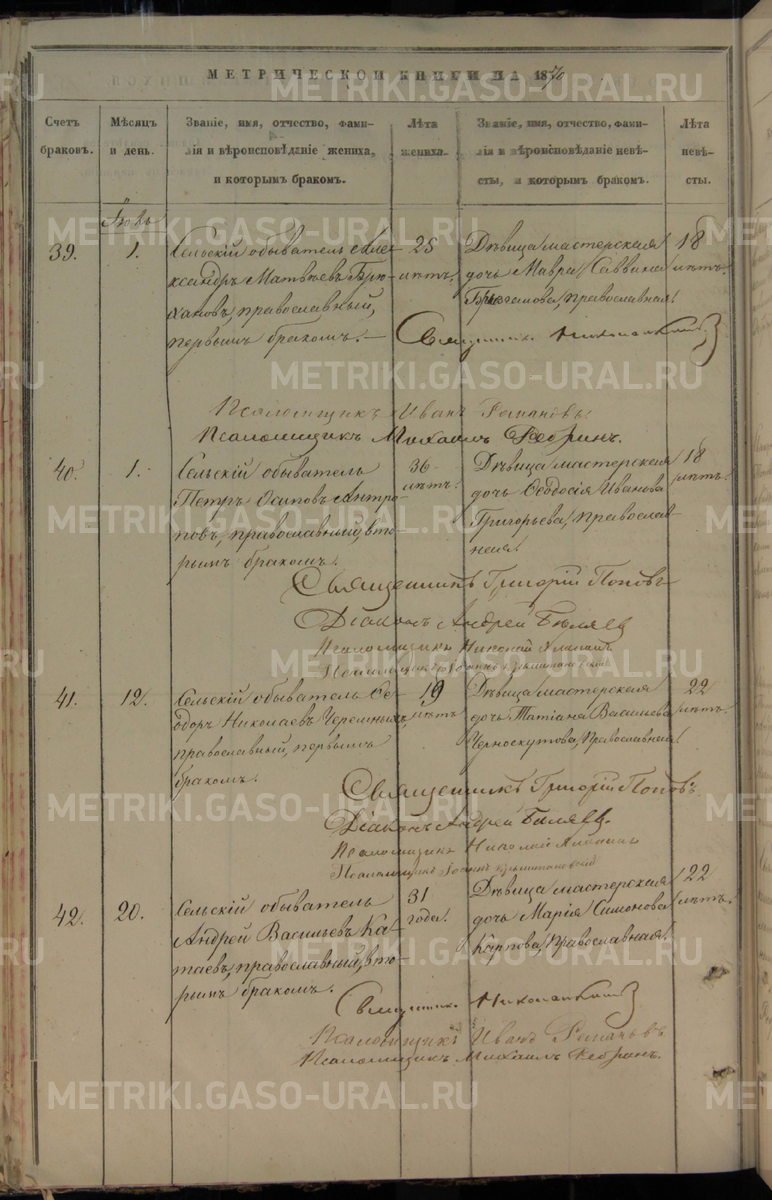 МЕТРИЧЕСКОЙ КНИГИ НА 1870
Счетъ браковъ.
Мѣсяцъ и день.
Званіе, имя, отчество, фами-
лія и вѣроисповѣданіе жениха,
и которымъ бракомъ.
Лѣта жениха.
Званіе, имя, отчество, фами-
лія и вѣроисповѣданіе невѣ-
сты, и которымъ бракомъ.
Лѣта невѣ-
сты.
39.
1.
Сельскій обыватель Алек
сандръ Матвѣевъ Брю-
хановъ, православный,
первымъ бракомъ.
25
лѣтъ.
Дѣвица мастерская
дочь Мавра Саввина
православная.
18
лѣтъ.
Священникъ
Псаломщикъ Иванъ Романовъ.
Псаломщикъ Михаилъ
40.
1.
Сельскій обыватель
Петръ Осиповъ Антро-
повъ, православный, вто-
рымъ бракомъ.
36
лѣтъ.
Дѣвица мастерская
дочь Ѳеодосія Иванова
Григорьева, Православ-
ная.
18
лѣтъ.
Священникъ Григорій Поповъ
Діаконъ Андрей Бѣляев
Псаломщикъ Николай
Псаломщикъ Іоаннъ
41.
12.
Сельскій обыватель Ѳе-
доръ Николаевъ Черемныхъ,
православный, первымъ
бракомъ.
19
лѣтъ
Дѣвица мастерская
дочь Татіана Васильева
Черноскутова, Православная.
22
лѣтъ.
Священникъ Григорій Поповъ
Діаконъ Андрей Бѣляев.
Псаломщикъ Николай
Псаломщикъ Іоаннъ
42.
20.
Сельскій обыватель
Андрей Васильевъ Ка-
таевъ, православный, вто-
рымъ бракомъ.
31
года.
Дѣвица мастерская
дочь Марія Симонова
Карпова, Православная.
22
лѣтъ.
Священникъ
Псаломщикъ Иванъ Романовъ
Псаломщикъ Михаилъ
METRIKI.GASO-URAL.RU